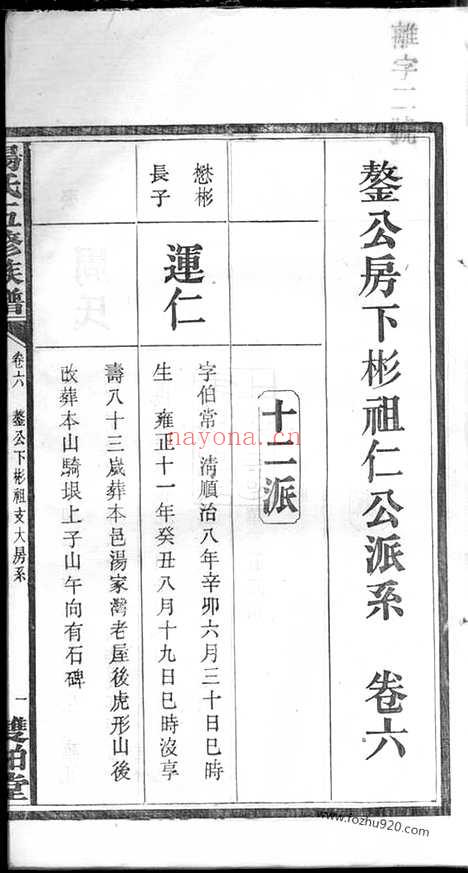 離字二號
鏊公房下彬祖仁公派系 卷六
十二派
懋彬
長子
運仁
字伯常 淸順治八年辛卯六月三十日巳時
生 雍正十一年癸丑八月十九日巳時沒享
壽八十三歲葬本邑湯家灣老屋後虎形山後
改葬本山騎垠上子山午向有石碑
湯氏五修族譜
卷六 鏊公下彬祖支大房系
一
雙柏堂
nayona.cn
www.rozhu920.com